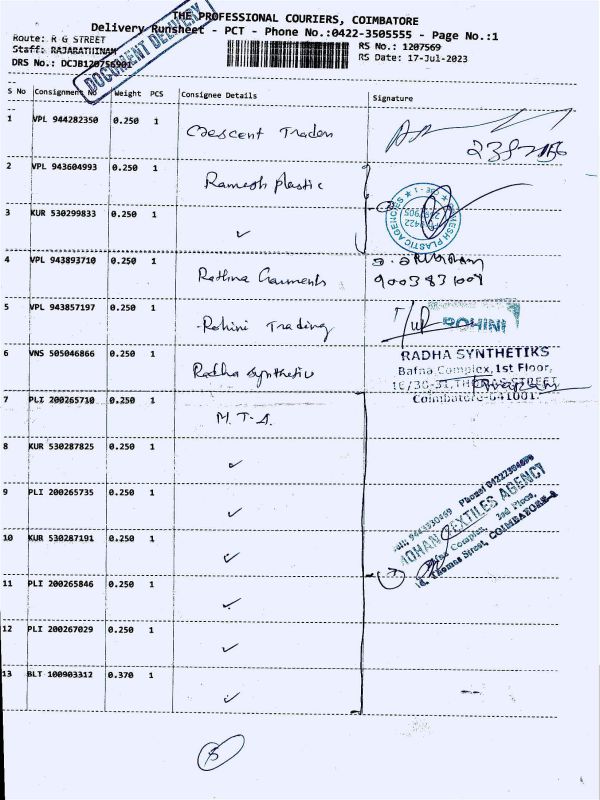 THE PROFESSIONAL COURIERS, COIMBATORE
Delivery Runsheet - PCT - Phone No.:0422-3505555 - Page No.:1
Route: R G STREET
Staff: RAJARATHINAM
DRS No.: DCJB120756901
RS No.: 1207569
RS Date: 17-Jul-2023
DOCUMENT DELIVERY
S No Consignment No Weight PCS Consignee Details Signature
1 VPL 944282350 0.250 1 Crescent Traders
2 VPL 943604993 0.250 1 Ramesh plastic
3 KUR 530299833 0.250 1 ✓
RAMESH PLASTIC AGENCIES ★ CBE - 1 ★
4 VPL 943893710 0.250 1 Rathna Garments
9003831009
5 VPL 943857197 0.250 1 Rohini Trading
ROHINI
6 VNS 505046866 0.250 1 Radha synthetic
RADHA SYNTHETIKS
Bafna Complex, 1st Floor,
16/30-31, THOMAS STREET
Coimbatore-641001.
7 PLI 200265710 0.250 1 M.T.A.
8 KUR 530287825 0.250 1 ✓
9 PLI 200265735 0.250 1 ✓
10 KUR 530287191 0.250 1 ✓
MOHAN TEXTILES AGENCY
Complex, 2nd Floor,
Thomas Street, COIMBATORE-1
11 PLI 200265846 0.250 1 ✓
12 PLI 267029 0.250 1 ✓
13 BLT 100903312 0.370 1 ✓
5